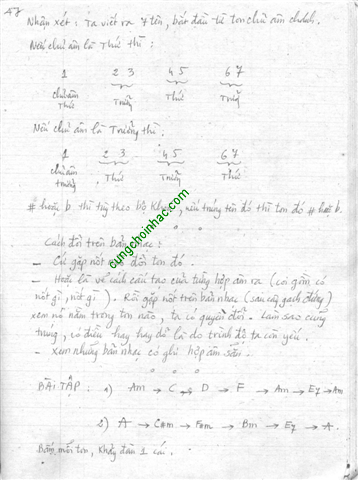 47
Nhận xét: Ta viết ra 7 tên, bắt đầu từ ton chủ âm chính.
Nếu chủ âm là Thứ thì:
1 2 3 4 5 6 7
chủ âm Thứ Triển Thứ Triển
Nếu chủ âm là Trưởng thì:
1 2 3 4 5 6 7
chủ âm trưởng Thứ Triển Thứ
# hoặc b thì tùy theo bộ Khóa, nếu trúng tên đó thì ton đó # hoặc b.
Cách đổi trên bản nhạc:
cungchoinhac.com
- Cứ gặp nốt đổi ton đó.
- Hoặc là về cách cấu tạo của từng hợp âm ra (coi gồm có
nốt gì, nốt gì). Rồi gặp nốt trên bản nhạc (sau cây gạch đứng)
xem nó nằm trong ton nào, ta có quyền đổi. Làm sao cũng
trúng, có điều hay hay dở là do trình độ ta còn yếu.
- Xem những bản nhạc có ghi hợp âm sẵn.
BÀI TẬP: 1) Am → C → D → F → Am → E7 → Am
2) A → C#m → F#m → Bm → E7 → A.
Bấm mỗi ton, khảy đàn 1 cái.